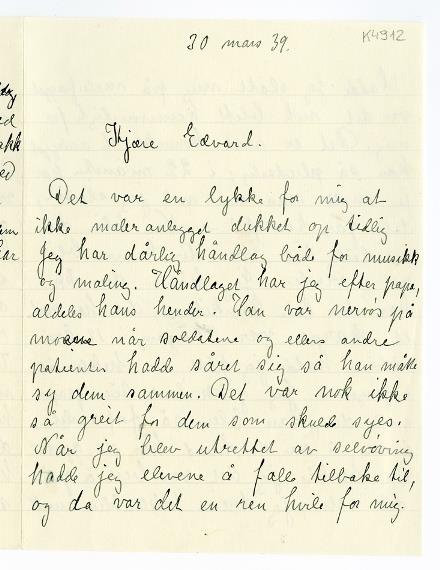 30 mars 39.
K4912
Kjære Edvard.
Det var en lykke for mig at
ikke maleranlegget dukket op tidlig
Jeg har dårlig håndlag både for musikk
og maling. Håndlaget har jeg efter papa,
aldeles hans hender. Han var nervøs på
når soldatene og ellers andre
patienter hadde såret sig så han måtte
sy dem sammen. Det var nok ikke
så greit for dem som skulde syes.
Når jeg blev utrettet av selvøving
hadde jeg elevene å falle tilbake til,
og da var det en ren hvile for mig.